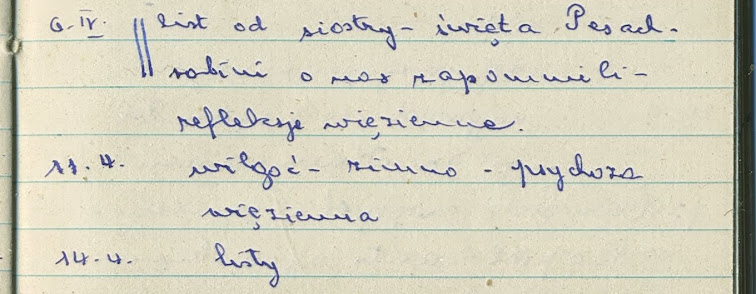 6. IV. list od siostry - święta Pesach -
rabini o nas zapomnieli -
refleksje więzienne.
11. 4. wilgoć - zimno - psychoza
więzienna
14. 4. listy